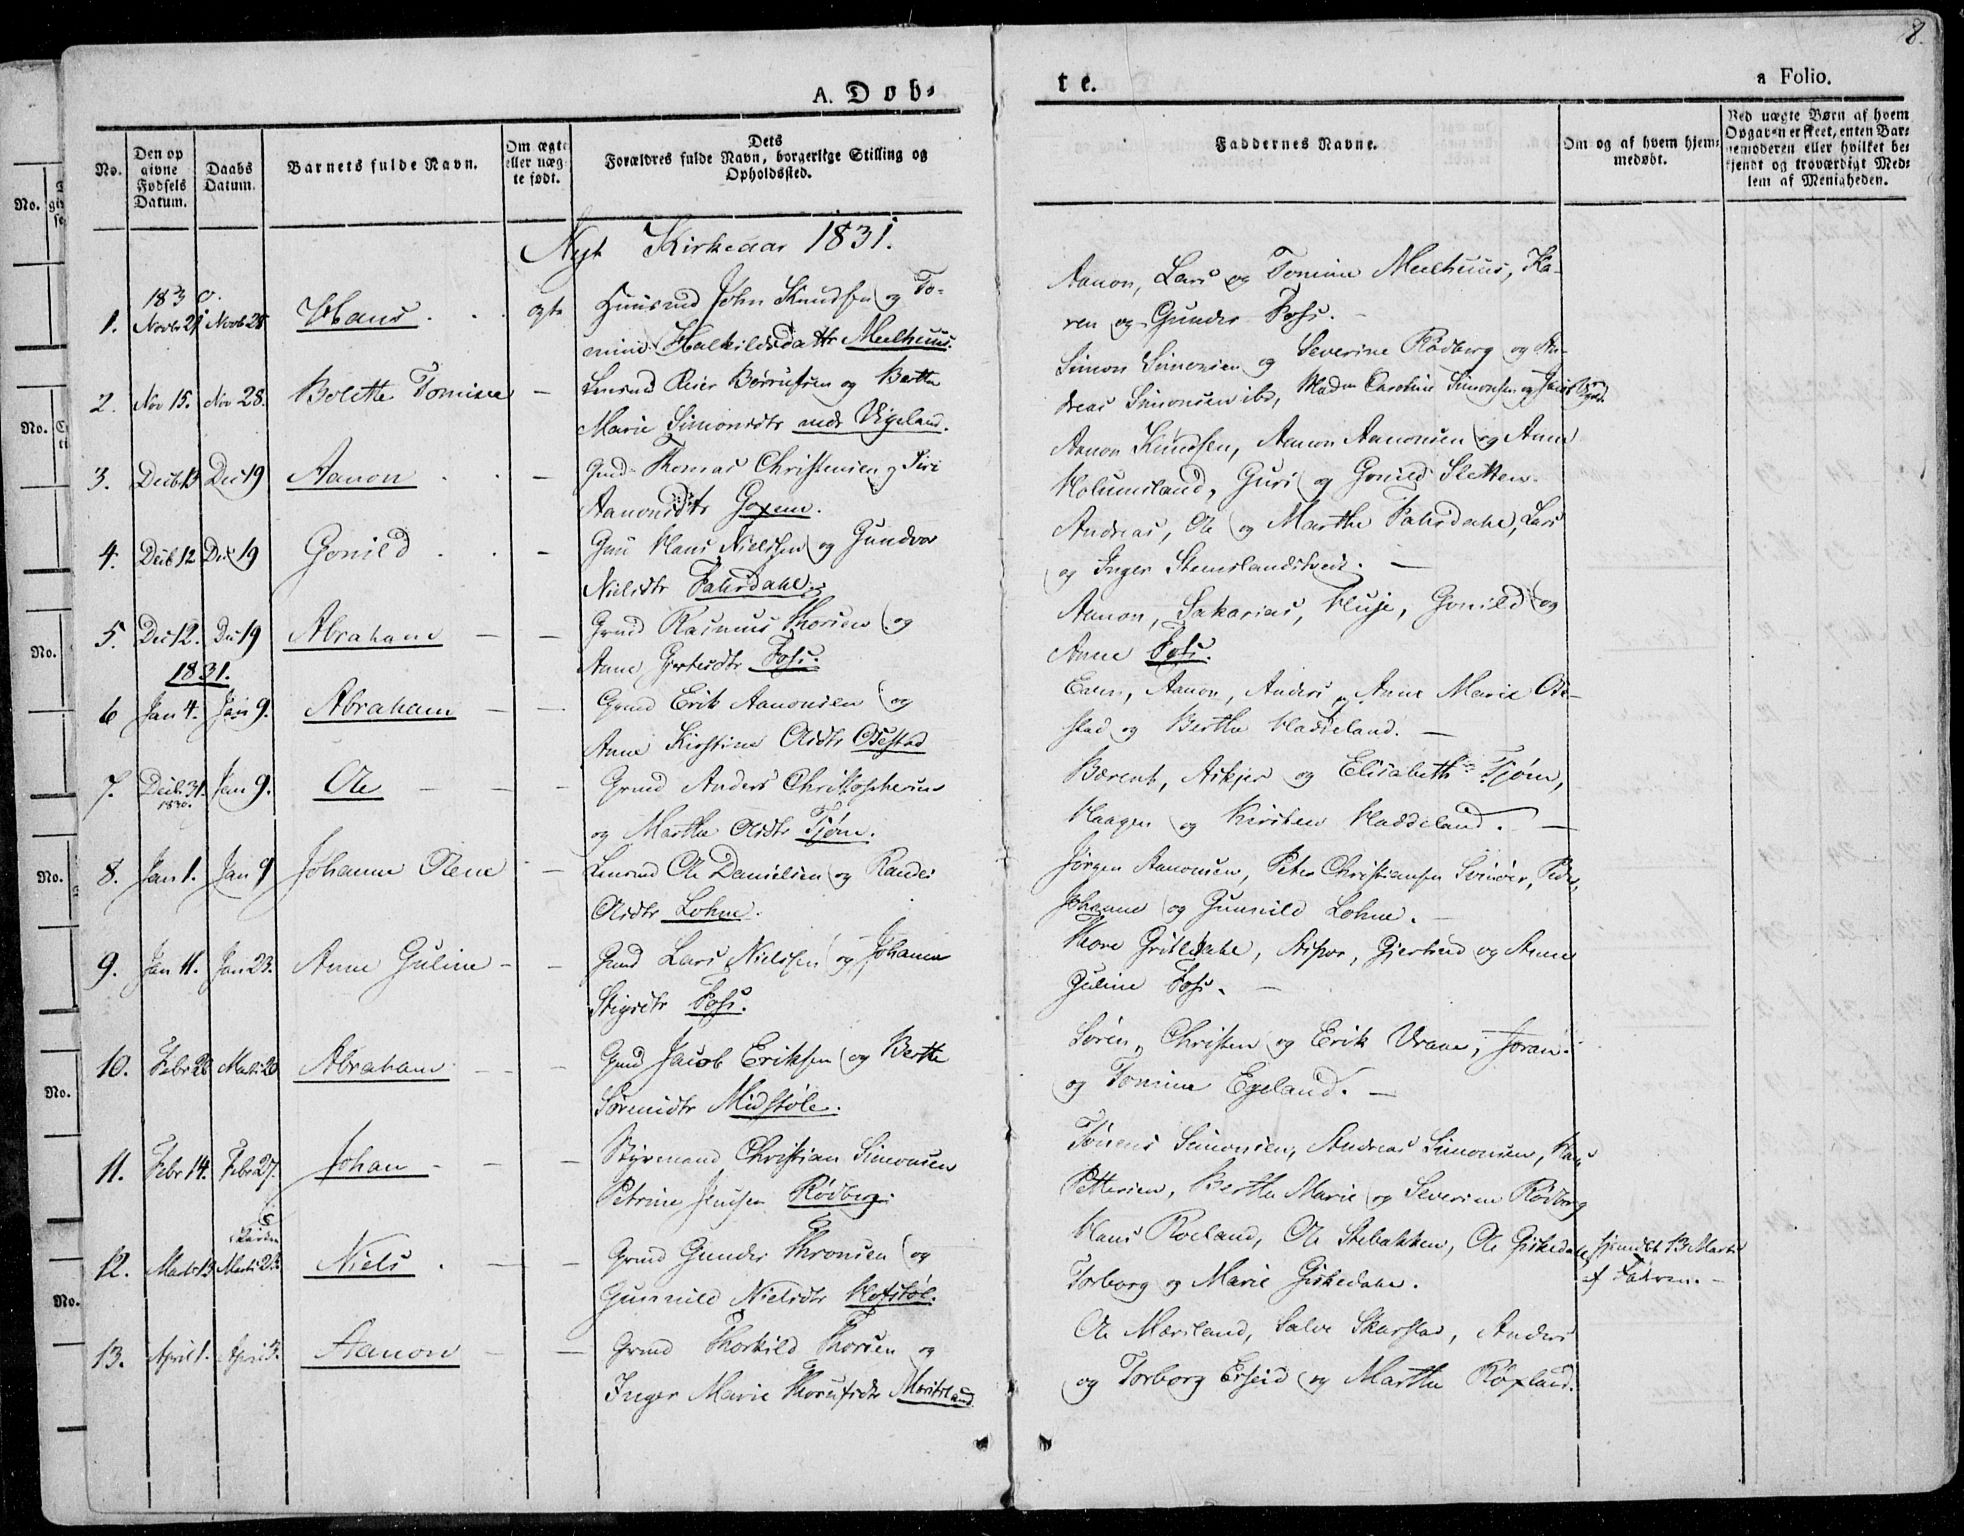 8.
A. Døb-
te.
a Folio.
No.
Den opgivne Fødsels Datum.
Daabs Datum.
Barnets fulde Navn.
Om ægte eller uægte født.
Dets Forældres fulde Navn, borgerlige Stilling og Opholdssted.
Faddernes Navne.
Om og af hvem hjemmedøbt.
Ved uægte Børn af hvem Opgaven er skeet, enten Barnemoderen eller hvilket bekjendt og troværdigt Medlem af Menigheden.
Nyt Kirkeaar 1831.
1830.
1. Novbr 21 Novb 28 Hans . . ægte Huusmd John Knudsen og To-
mine Halkildsdattr Meelhuus.
Aanon, Lars og Tomine Meelhuus, Ka-
ren og Gunder Foss.
2. Nov 15. Nov 28. Bolette Tomine — Reier Børruldsen og Berthe
Marie Simonsdtr nedr Vigeland.
Simon Simonsen og Severine Rødberg og An-
dreas Simonsen ibd, Madm Caroline Simonsen og
3. Decb 13 Dec 19 Aanon . . — Gmd Thomas Christensen og Siri
Aanonsdtr
Aanon Knudsen, Aanon Aanonsen og Anne
Holumsland, Guri og Gonild Sletten.
4. Decb 12 Dec 19 Gonild . . — Gmd Hans Nielsen og Gundvor
Nielsdtr Fahrdahl
Andreas, Ole og Marthe Fahrdahl, Lars
og Inger
5. Dec 12. Dec 19 Abraham — — Grmd Rasmus Thorsen og
Anne Foss.
Aanon, Sakarias, Gonild og
Anne Foss.
1831.
6 Jan 4. Jan 9. Abraham — — Grmd Erik Aanonsen og
Anne Kirstine Olsdtr Odestad
Even, Aanon, Anders, Anne Marie Ode-
stad og Berthe Haddeland. —
7. Decb. 31. 1830. Jan 9. Ole — — — Grmd Anders Christophersen
og Marthe Olsdtr Tjøm.
Berent, Askjer og Elisabeth Tjøm,
Haagen og Kirsten Haddeland. —
8. Jan 1. Jan 9 Johanne Olene — Ole Danielsen og Randei
Olsdtr Lohne.
Jørgen Aanonsen, Peter Christiansen Svinøer, Peder,
Johanne og Gunnild Lohne. —
9. Jan 11. Jan 23. Anne Guline — — Gmd Lars Nielsen og Johanne
Stigsdtr Foss.
Thore, Gjertrud og Anne
Guline Foss. —
10. Febr 26 Marts 20 Abraham — — Gmd Jacob Eriksen og Berthe
Sørensdtr Midstøle.
Søren, Christen og Erik Vraae, Joran
og Tomine Egeland. —
11. Febr 14. Febr 27. Johan — — — Styrmand Christian Simonsen
Petrine Jensen Rødberg.
Tønnes Simonsen, Andreas Simonsen, Hans
Pettersen, Berthe Marie og Severine Rødberg
12. Marts 13 Marts 23. Niels . — — Grmd Gunder Thronsen og
Gunnild Nielsdtr Hofstøl.
Hans Roeland, Ole Stebakken, Ole Giskedahl,
Torborg og Marie Giskedahl.
hjemdøbt 13 Marts
af Fadren. —
13. April 1. April 3. Aanon — — Grmd Thorkild Thorsen og
Inger Marie
Ole Mæsland, Salve Skarstad, Anders
og Torborg Erseid og Marthe Røfland.